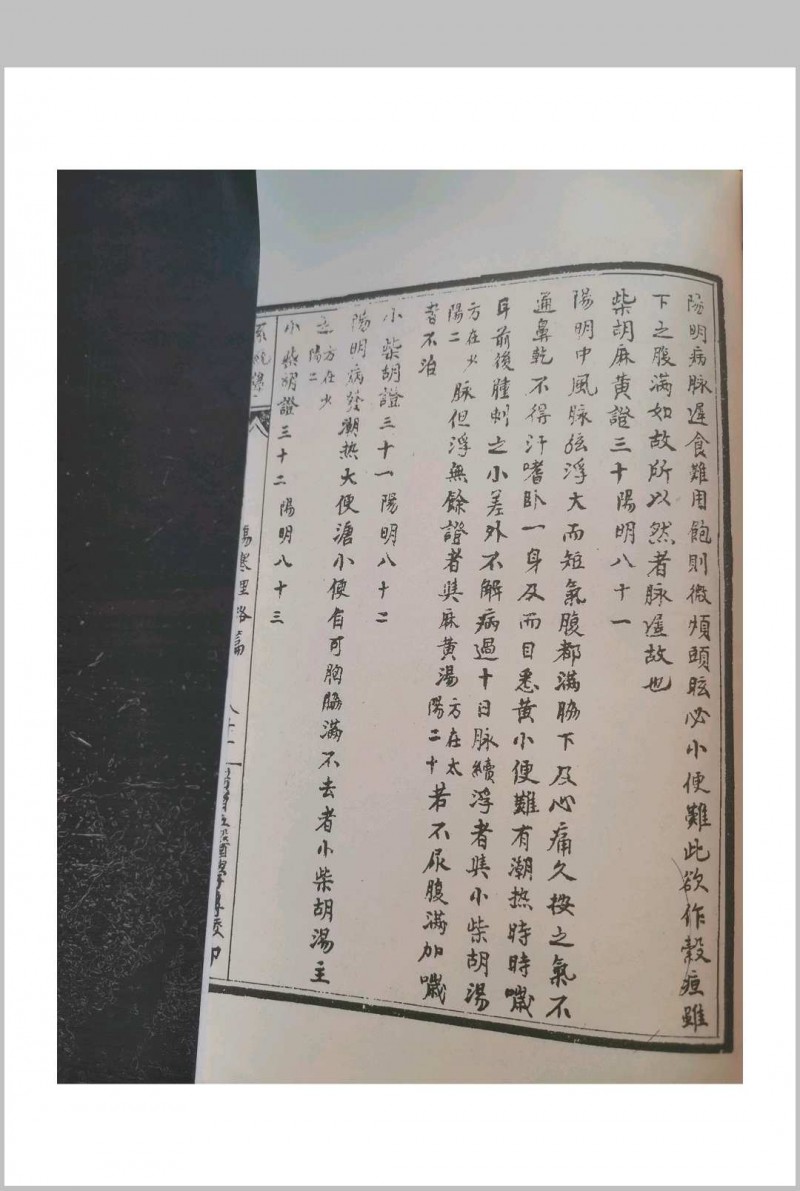 陽明病脉遲食難用飽則微煩頭眩必小便難此欲作穀疸雖
下之腹滿如故所以然者脉遲故也
柴胡麻黃證三十陽明八十一
陽明中風脉弦浮大而短氣腹都滿脇下及心痛久按之氣不
通鼻乾不得汗嗜卧一身及而目悉黃小便難有潮熱時時噦
耳前後腫刺之小差外不解病過十日脉續浮者與小柴胡湯
方在少陽二脉但浮無餘證者與麻黃湯方在太陽二十若不尿腹滿加噦
者不治
小柴胡證三十一陽明八十二
陽明病發潮热大便溏小便自可胸脇滿不去者小柴胡湯主
之方在少陽二
小柴胡證三十二陽明八十三
傷寒理路篇
八十一